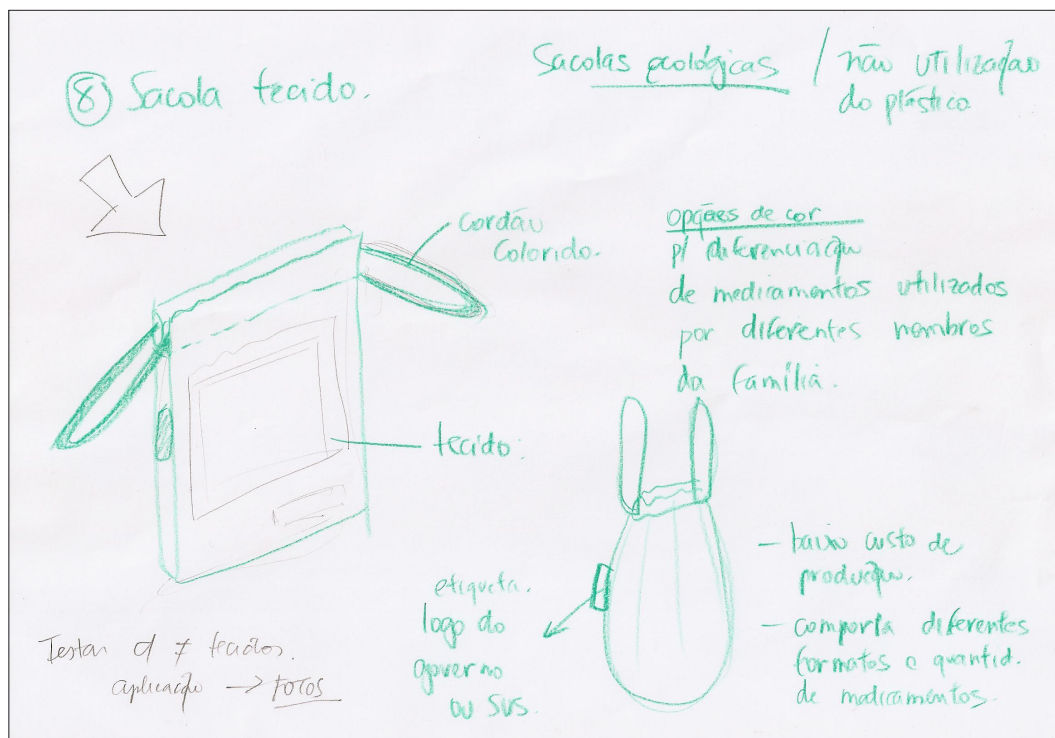 ⑧ Sacola tecido.
Sacolas ecológicas / não utilização
do plástico
cordão
colorido.
opções de cor
p/ diferenciação
de medicamentos utilizados
por diferentes membros
da família.
tecido.
etiqueta.
logo do
governo
ou SUS.
– baixo custo de
produção.
– comporta diferentes
formatos e quantid.
de medicamentos.
Testar c/ ≠ tecidos.
aplicação → FOTOS